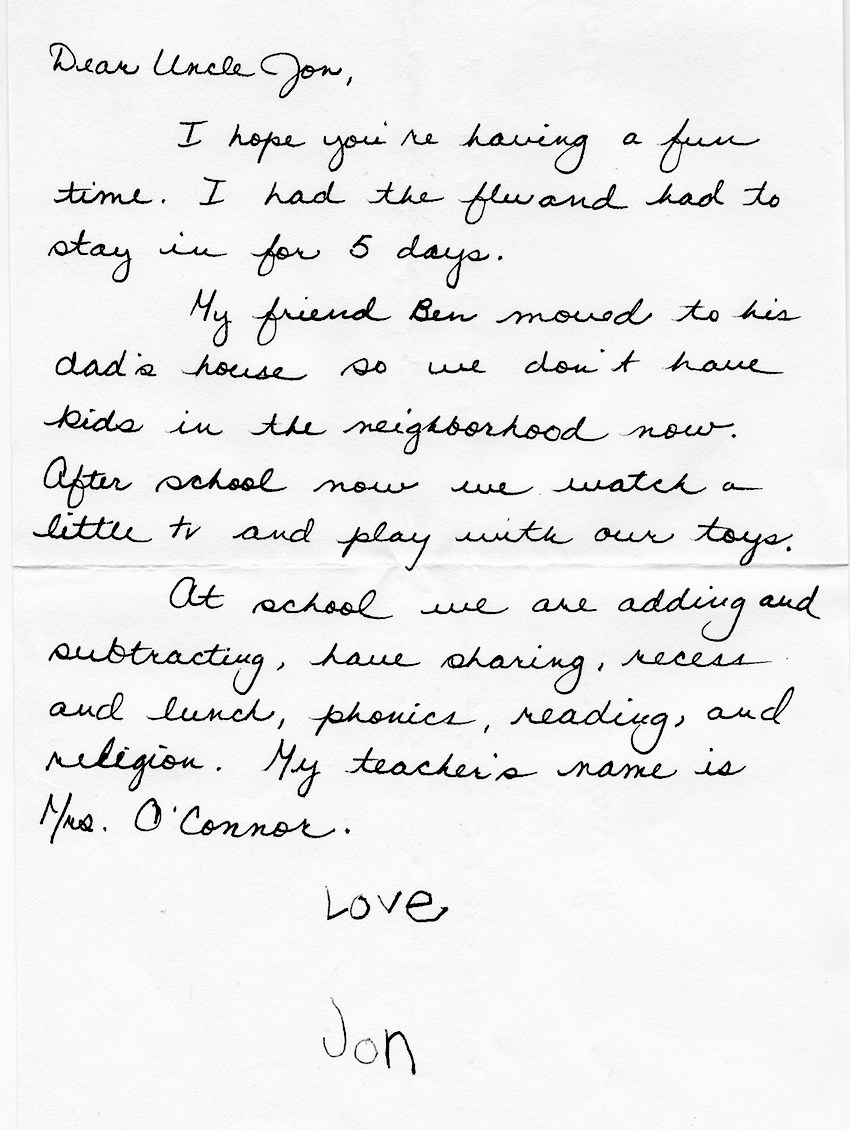 Dear Uncle Jon,
I hope you're having a fun
time. I had the flu and had to
stay in for 5 days.
My friend Ben moved to his
dad's house so we don't have
kids in the neighborhood now.
After school now we watch a
little tv and play with our toys.
At school we are adding and
subtracting, have sharing, recess
and lunch, phonics, reading, and
religion. My teacher's name is
Mrs. O'Connor.
Love
Jon